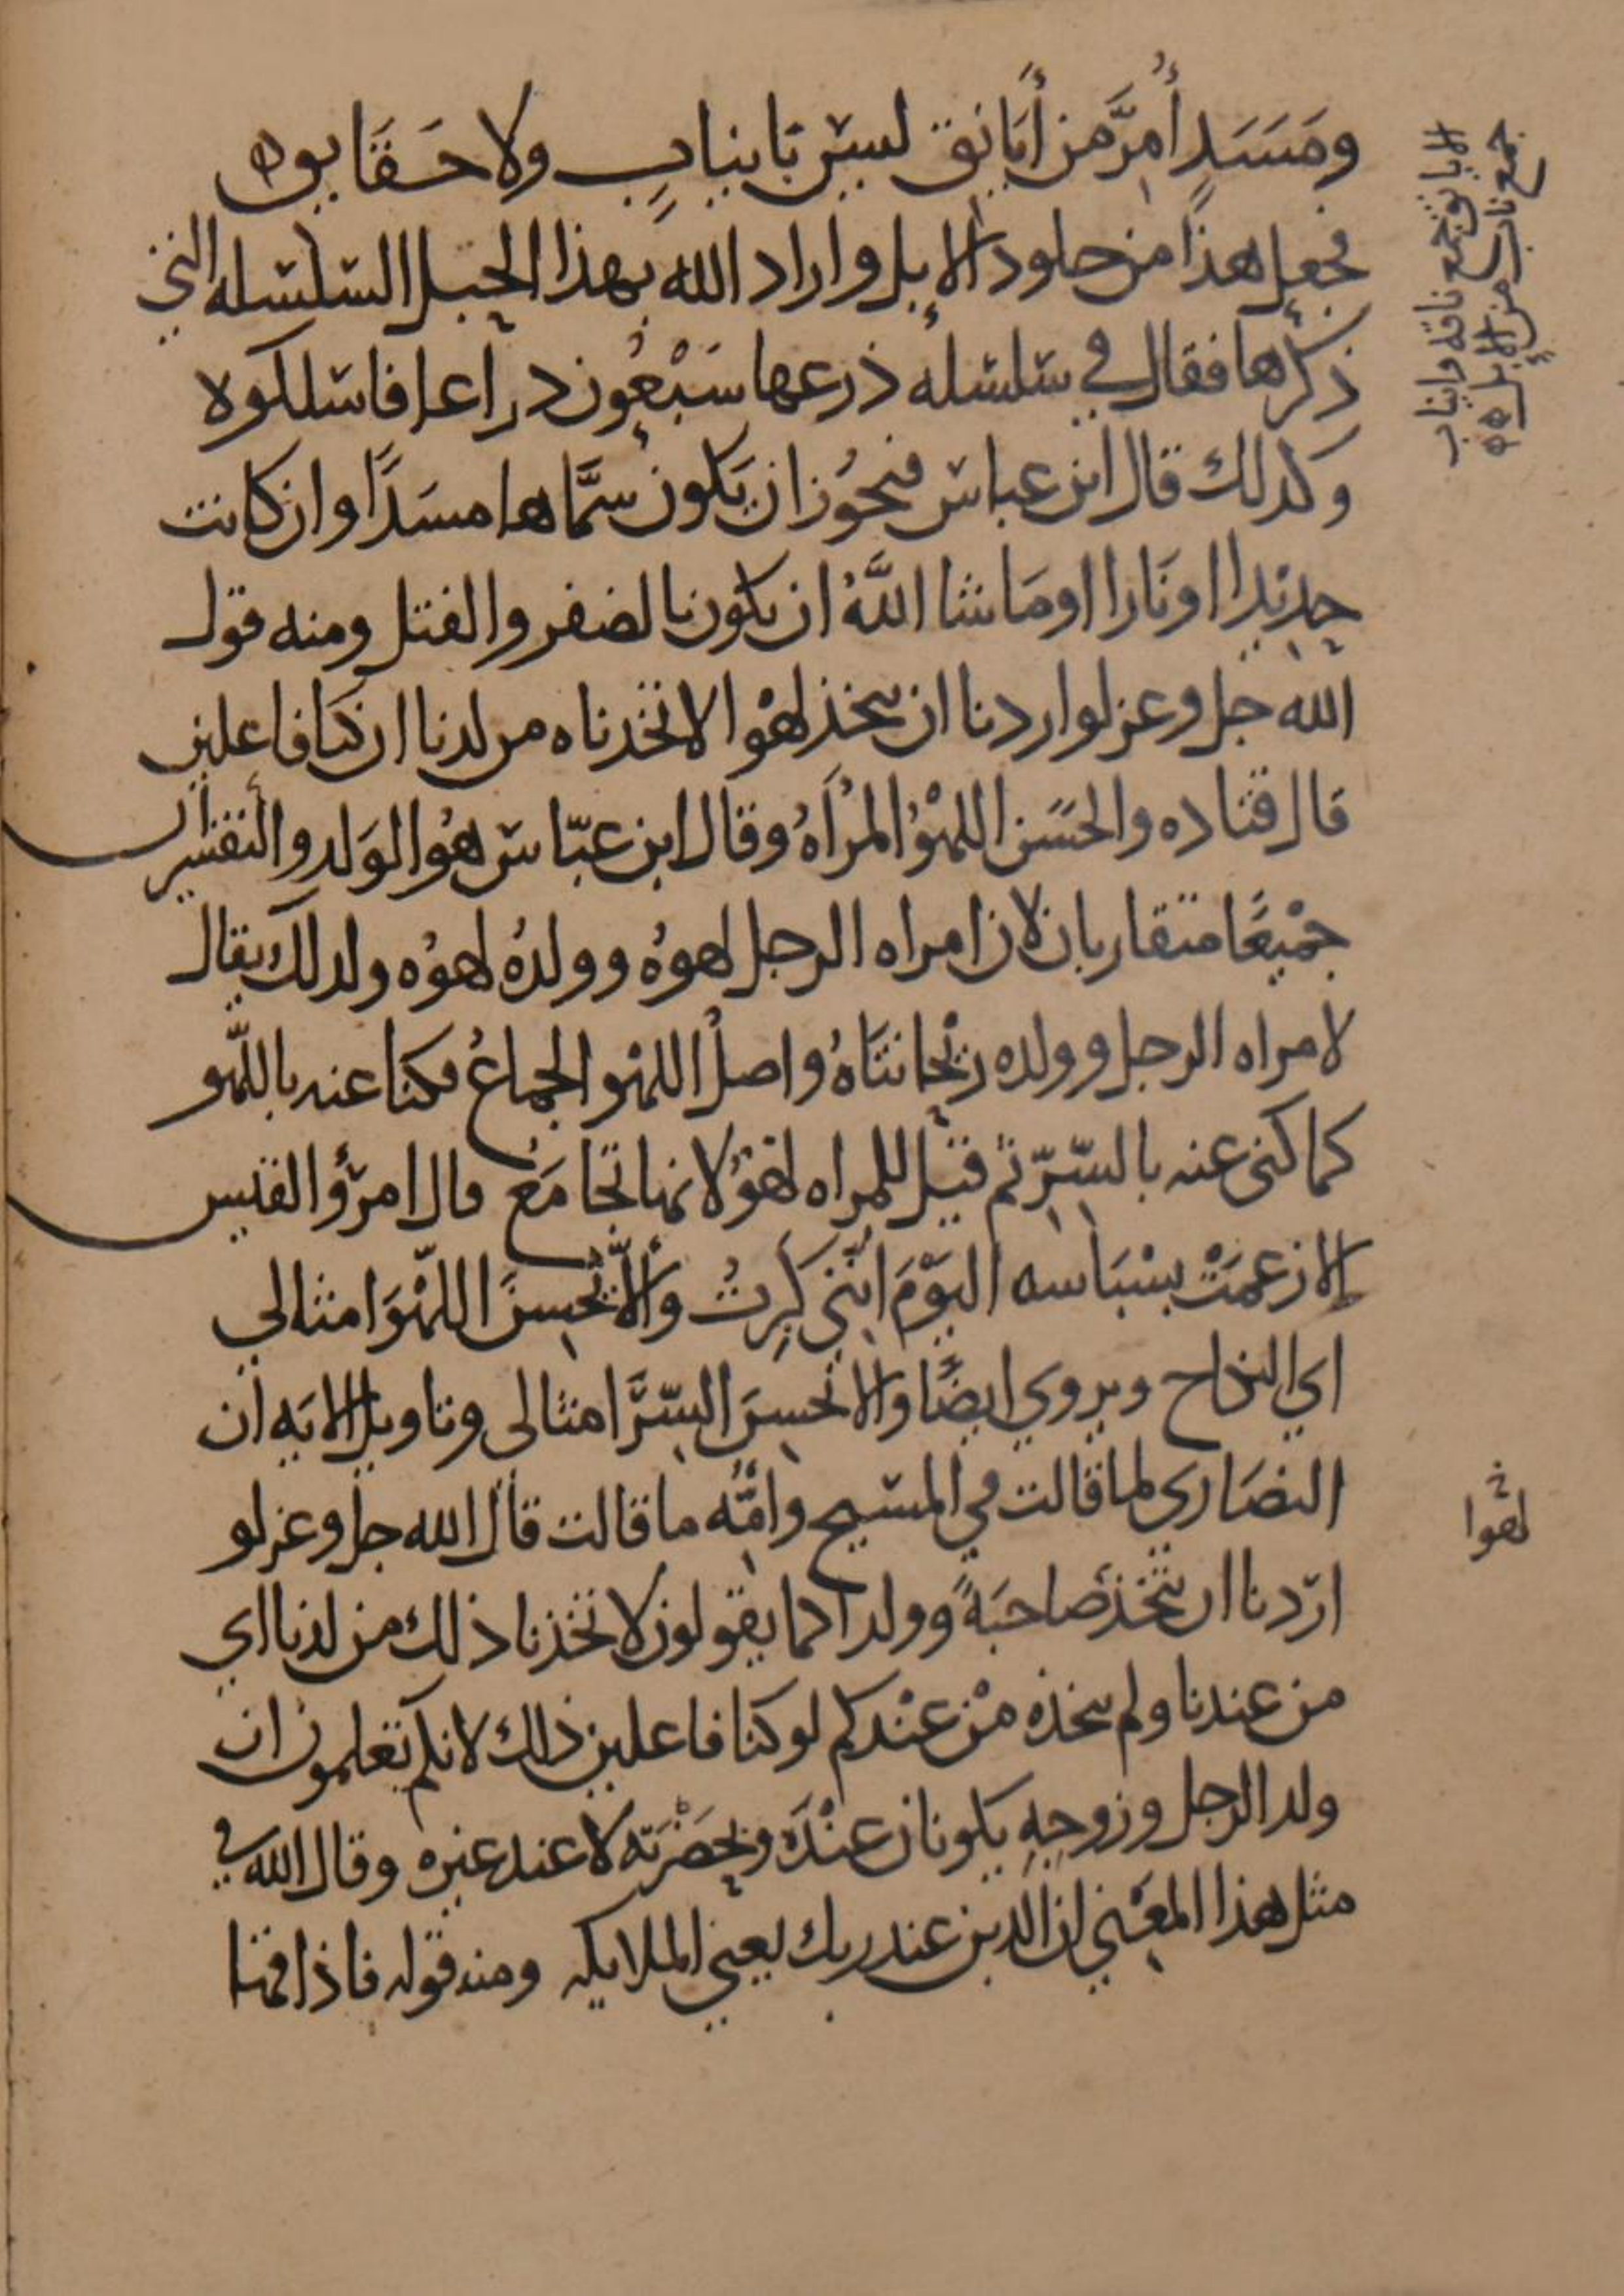 ومَسَدٍ أُمِرَّ من أَيَانِقِ لسْنَ بأنيابٍ ولا حَقَايق
فجعل هذا من جلود الابل واراد الله بهذا الحبل السلسله التي
ذكرها فقال في سلسله ذرعها سَبْعُون ذراعا فاسلكوه
وكذلك قال ابن عباس فيجُوز ان يَكون سَمَّاها مسَدًا وان كانت
حديدا او نَارا او مَا شا اللَّهُ ان يكون بالضفر والفتل ومنه قول
الله جل وعز لو اردنا ان نتخذ لهْوا لاتخذناه من لدنا ان كنا فاعلين
قال قتاده والحسَن اللهْوُ المرْأهُ وقال ابن عبّاس هُوا الوَلد والتفسيران
جمْيعًا متقاربان لان امراه الرجل لهوُهُ وولدُهُ لهوُه ولذلك يقال
لامراه الرجل وولده ريْحانتَاهُ واصلُ اللهْو الجماعُ فكنا عنه باللّهو
كما كنى عنه بالسّرّ ثم قيل للمراه لهْوٌ لانها تجَامَعُ قال امرؤُ القيس
الا زعمَتْ بسْبَاسه اليَوْمَ انّني كَبِرتُ وألاّ تُحسِنَ اللّهْوَ امثالي
اي النكاح ويروي ايضًا والا تحسِنَ السِّرَّ امثالى وتاويل الايَه ان
النصَاري لما قالت في المسيح وامّه ما قالت قال الله جل وعز لو
ارَدنا ان نتّخذ صاحبَةً وولدا كما يقولون لاتخذنا ذلك من لدنا اي
من عندنا ولم نتخذه مْن عنْدكم لو كنا فاعلين ذلك لانكم تعلمون ان
ولد الرجل وزوجه يكونان عنْدَه وبحَضْرَته لا عند غيره وقال الله في
مثل هذا المعْني ان الذين عند ربك يعني الملايكه ومنه قوله فاذاقها
الايانق جمع ناقه وانياب
جمع ناب من الابل
لهوا